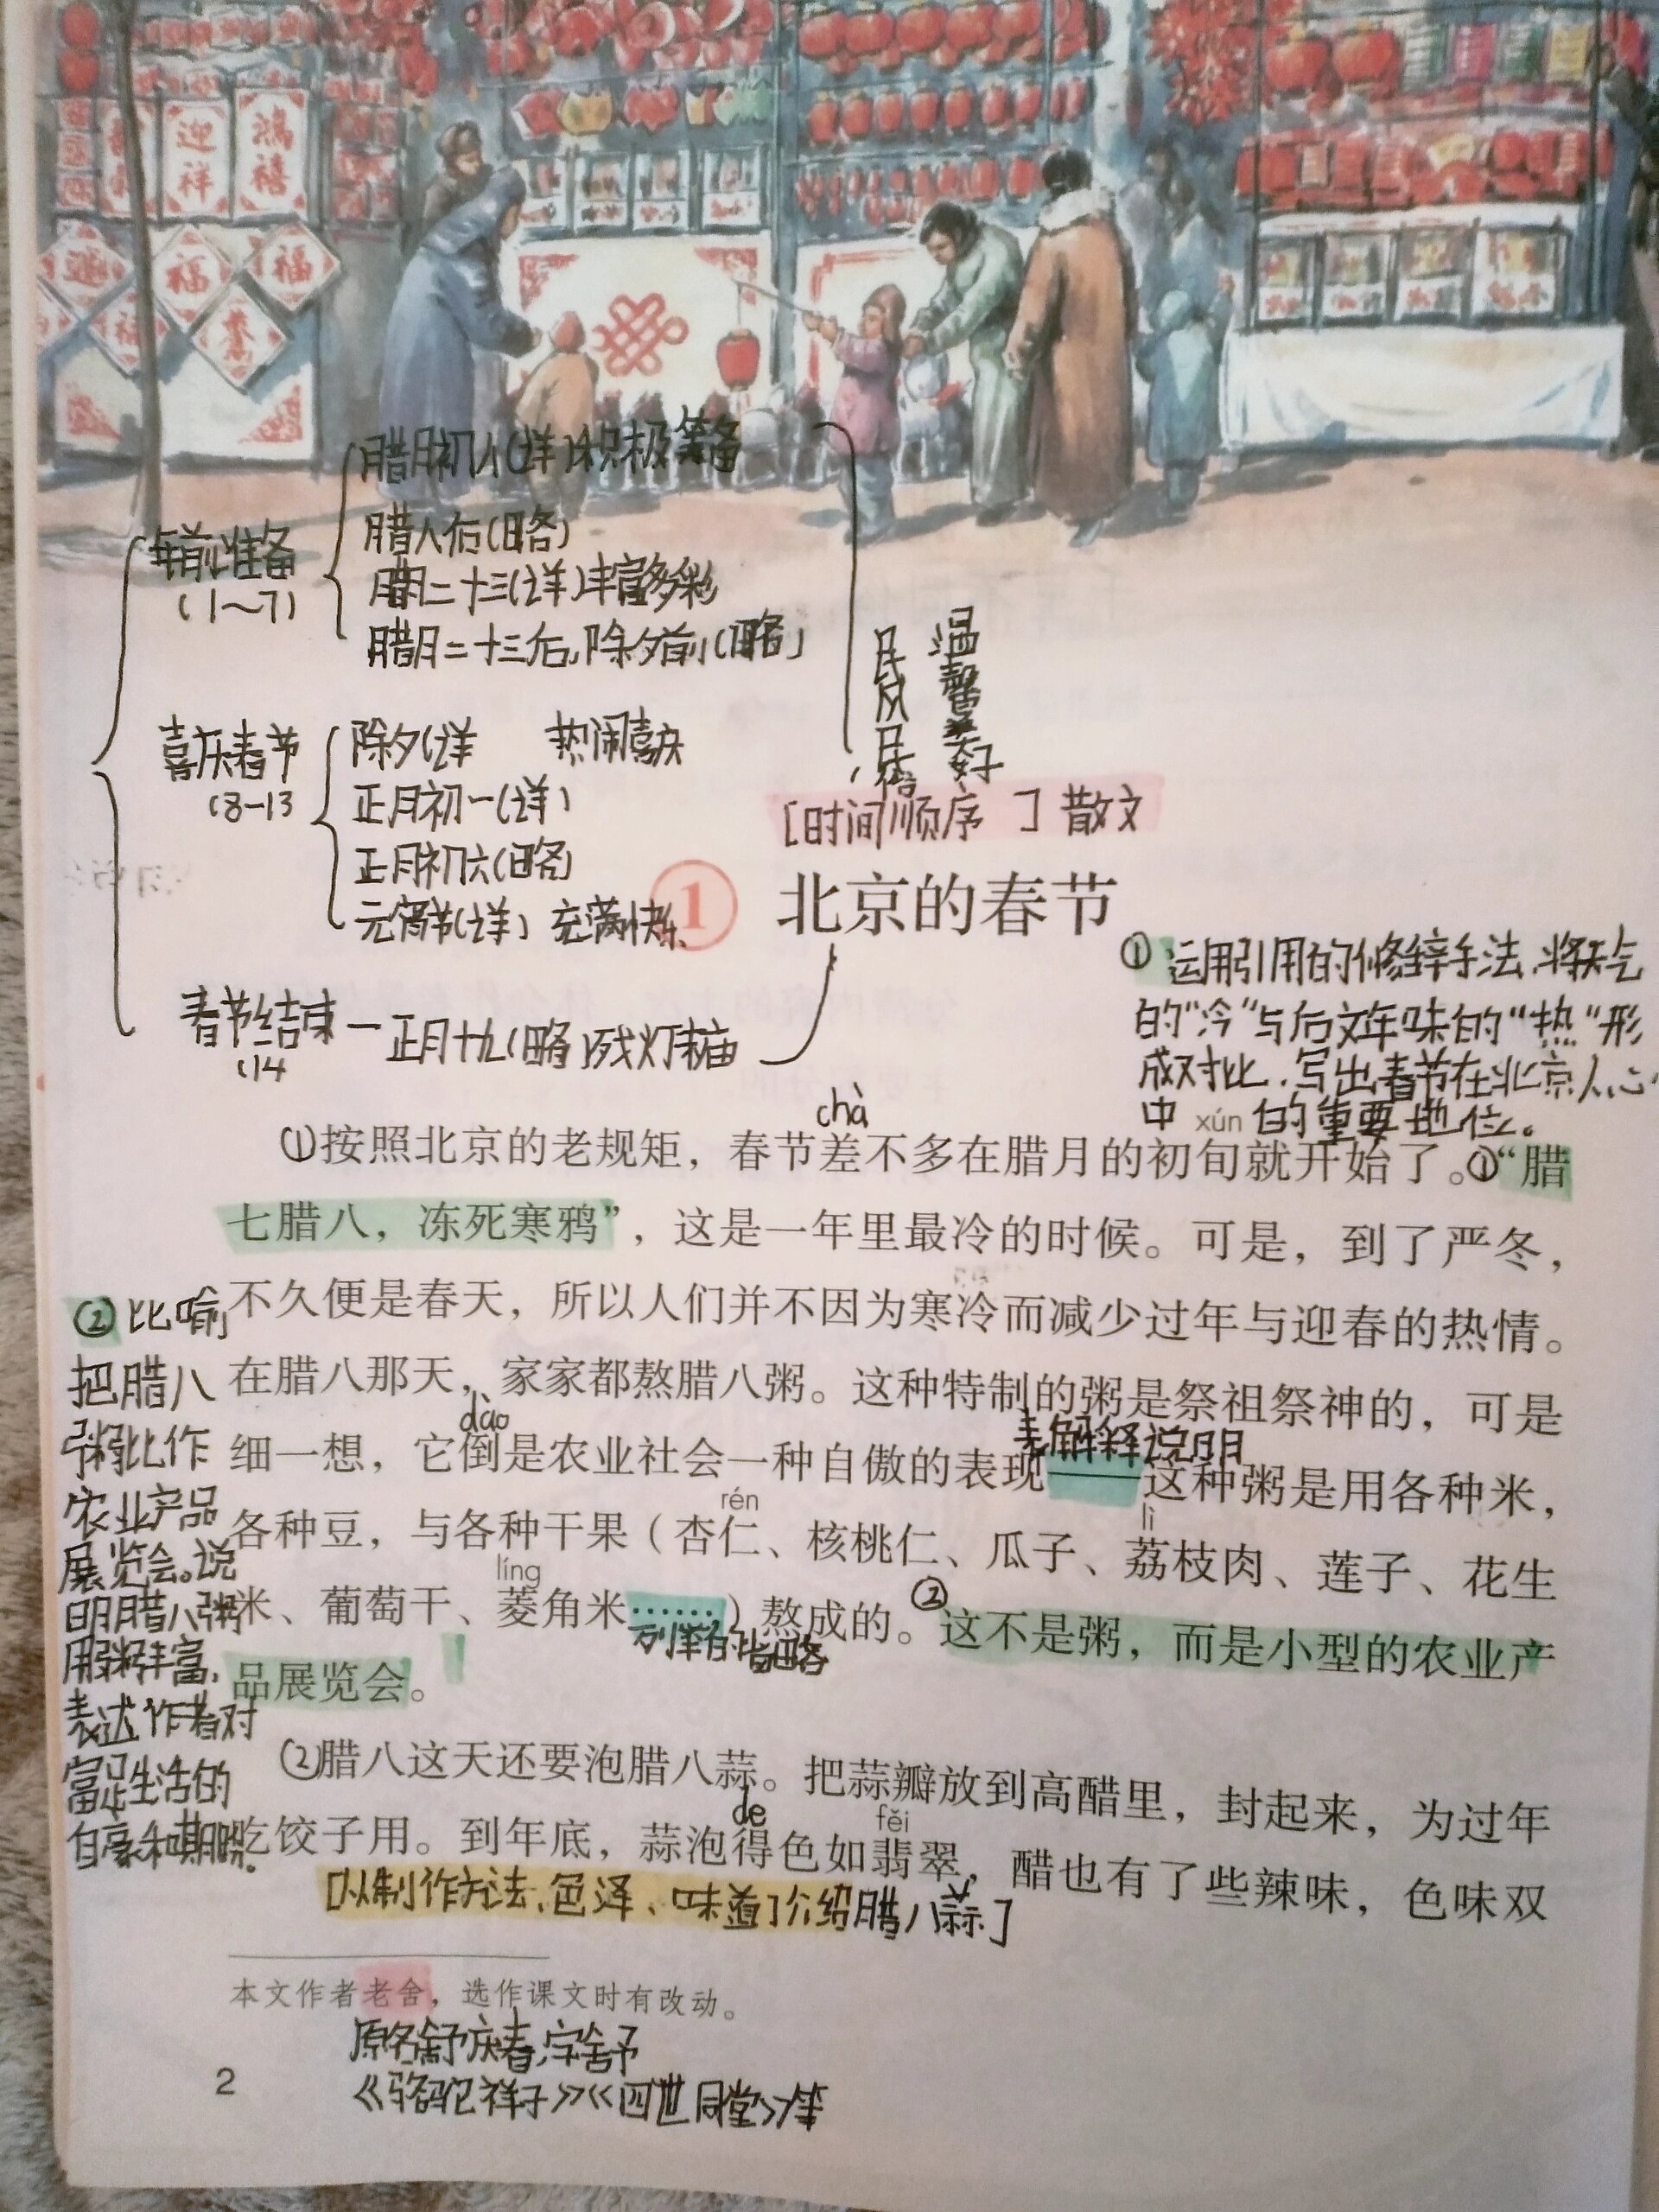 迎祥
鸿禧
福
福
年前准备
(1~7)
腊月初八(详)积极筹备
腊八后(略)
腊月二十三(详)丰富多彩
腊月二十三后,除夕前(略)
喜庆春节
(8-13
除夕(详 热闹喜庆
正月初一(详)
正月初六(略)
元宵节(详) 充满快乐
春节结束 — 正月十九(略)残灯末庙
(14
民风民俗
温馨美好
[时间顺序 ] 散文
1 北京的春节
① 运用引用的修辞手法,将天气
的"冷"与后文年味的"热"形
成对比,写出春节在北京人心
中的重要地位。
chà
xún
①按照北京的老规矩，春节差不多在腊月的初旬就开始了。①“腊
七腊八，冻死寒鸦”，这是一年里最冷的时候。可是，到了严冬，
不久便是春天，所以人们并不因为寒冷而减少过年与迎春的热情。
在腊八那天，家家都熬腊八粥。这种特制的粥是祭祖祭神的，可是
dào
表解释说明
细一想，它倒是农业社会一种自傲的表现——这种粥是用各种米，
rén
lì
各种豆，与各种干果（杏仁、核桃仁、瓜子、荔枝肉、莲子、花生
líng
米、葡萄干、菱角米……）熬成的。②这不是粥，而是小型的农业产
列举的省略
品展览会。
② 比喻
把腊八
粥比作
农业产品
展览会。说
明腊八粥
用粥丰富,
表达作者对
富足生活的
自豪和期盼.
②腊八这天还要泡腊八蒜。把蒜瓣放到高醋里，封起来，为过年
de
fěi
吃饺子用。到年底，蒜泡得色如翡翠，醋也有了些辣味，色味双
[从制作方法、色泽、味道介绍腊八蒜]
本文作者老舍，选作课文时有改动。
原名舒庆春,字舍予
《骆驼祥子》《四世同堂》等
2